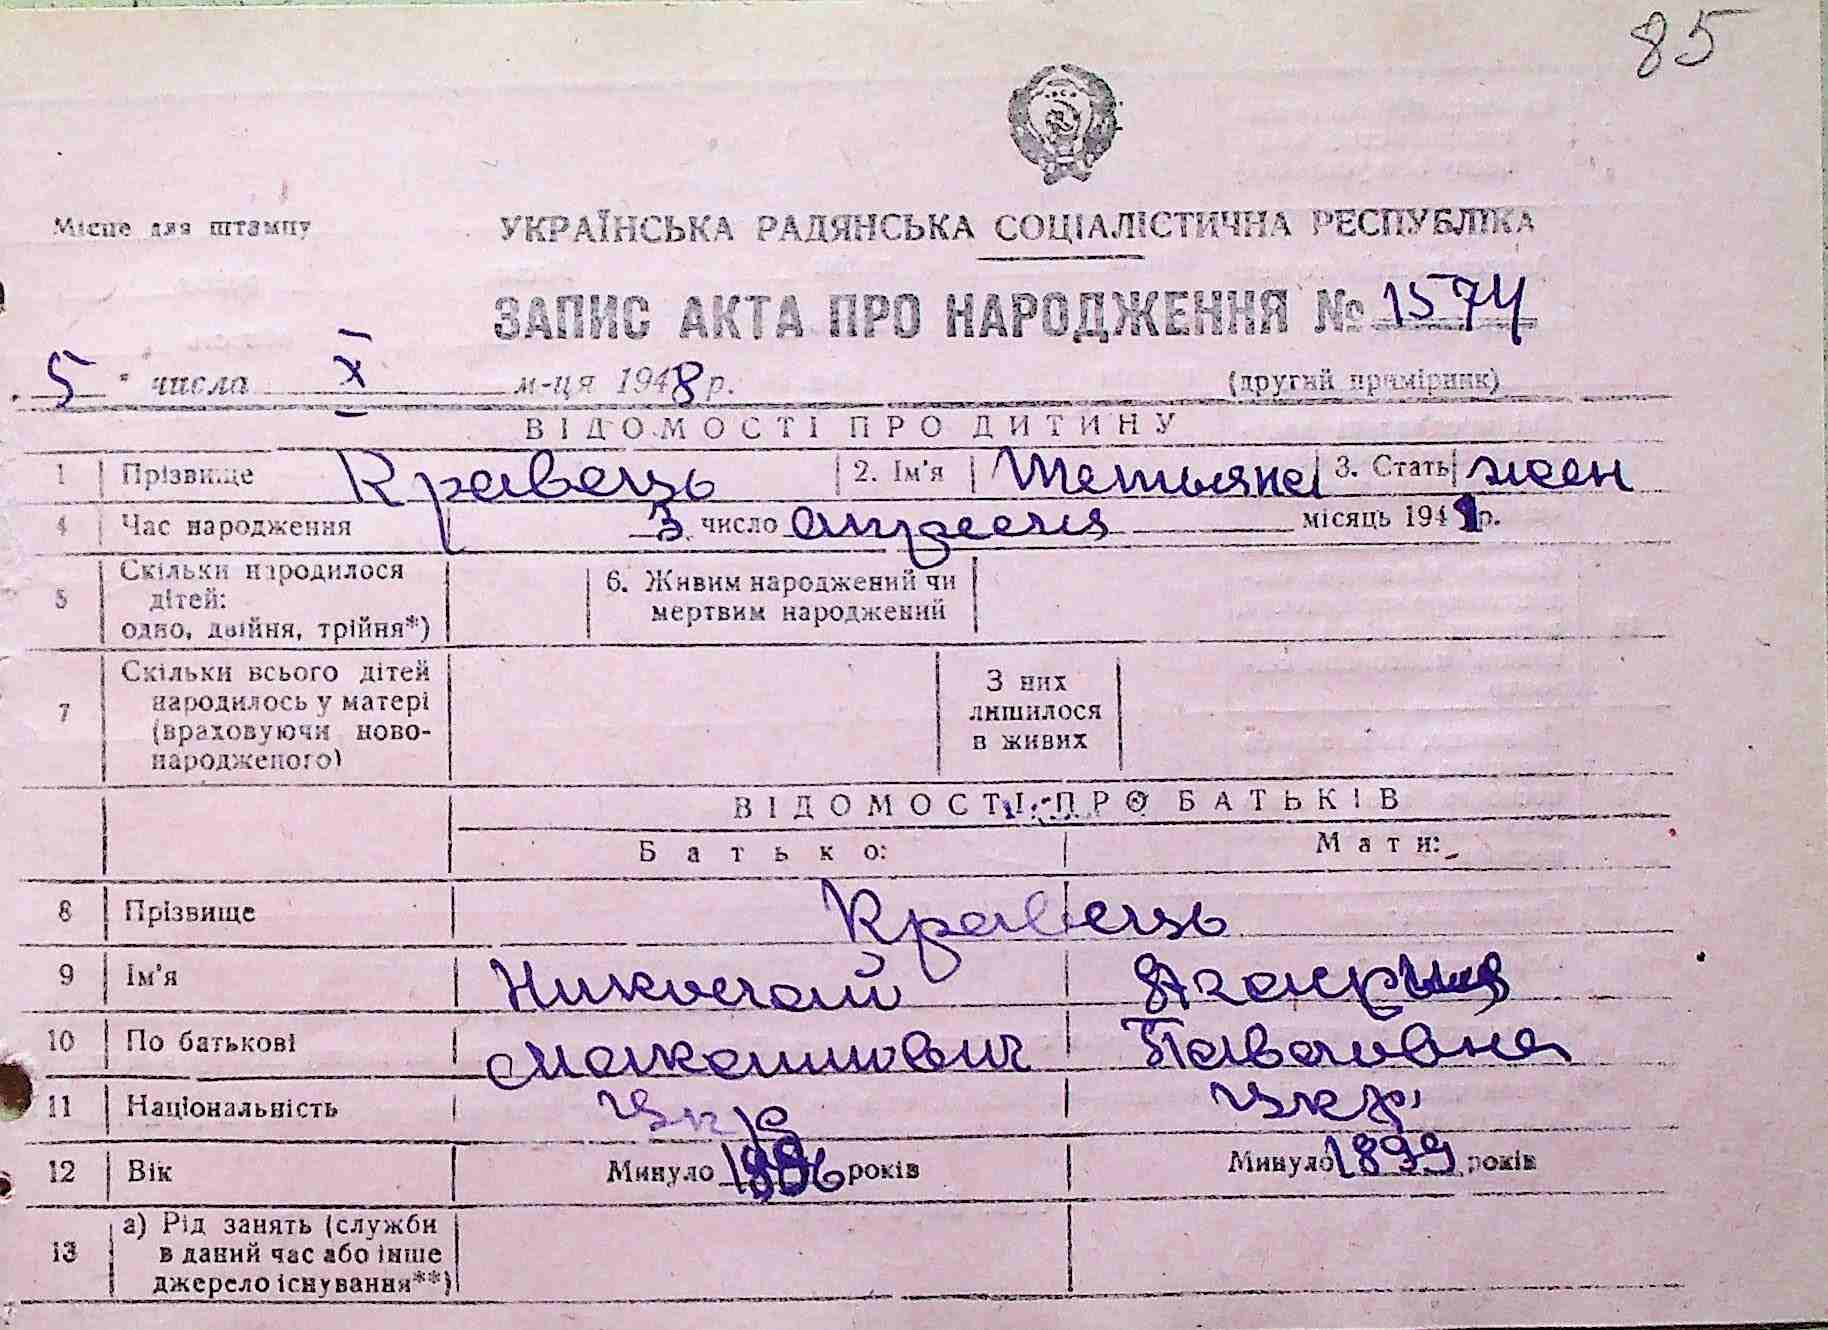 85
Місце для штампу
УКРАЇНСЬКА РАДЯНСЬКА СОЦІАЛІСТИЧНА РЕСПУБЛІКА
ЗАПИС АКТА ПРО НАРОДЖЕННЯ № 1574
„ 5 " числа X м-ця 1948 р. (другий примірник)
ВІДОМОСТІ ПРО ДИТИНУ
1 Прізвище Кравець 2. Ім'я Тетьяна 3. Стать жен
4 Час народження 3 число апреля місяць 1941 р.
5 Скільки народилося дітей: одно, двійня, трійня*) 6. Живим народжений чи мертвим народжений
7 Скільки всього дітей народилось у матері (враховуючи новонародженого) З них лишилося в живих
ВІДОМОСТІ ПРО БАТЬКІВ
Батько: Мати:
8 Прізвище Кравець
9 Ім'я Николай
10 По батькові Макаинович Павловна
11 Національність Укр Укр
12 Вік Минуло років Минуло 1899 років
13 а) Рід занять (служби в даний час або інше джерело існування**)